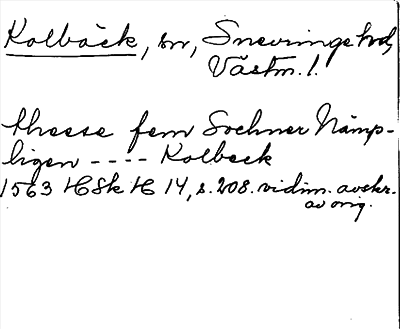 Kolbäck, sn, Snevringe hd,
Västm. l.
thesse fem Sochner Nämp-
ligen ---- Kolbeck
1563 HSk H 14, s. 208. vidim. avskr.
av orig.